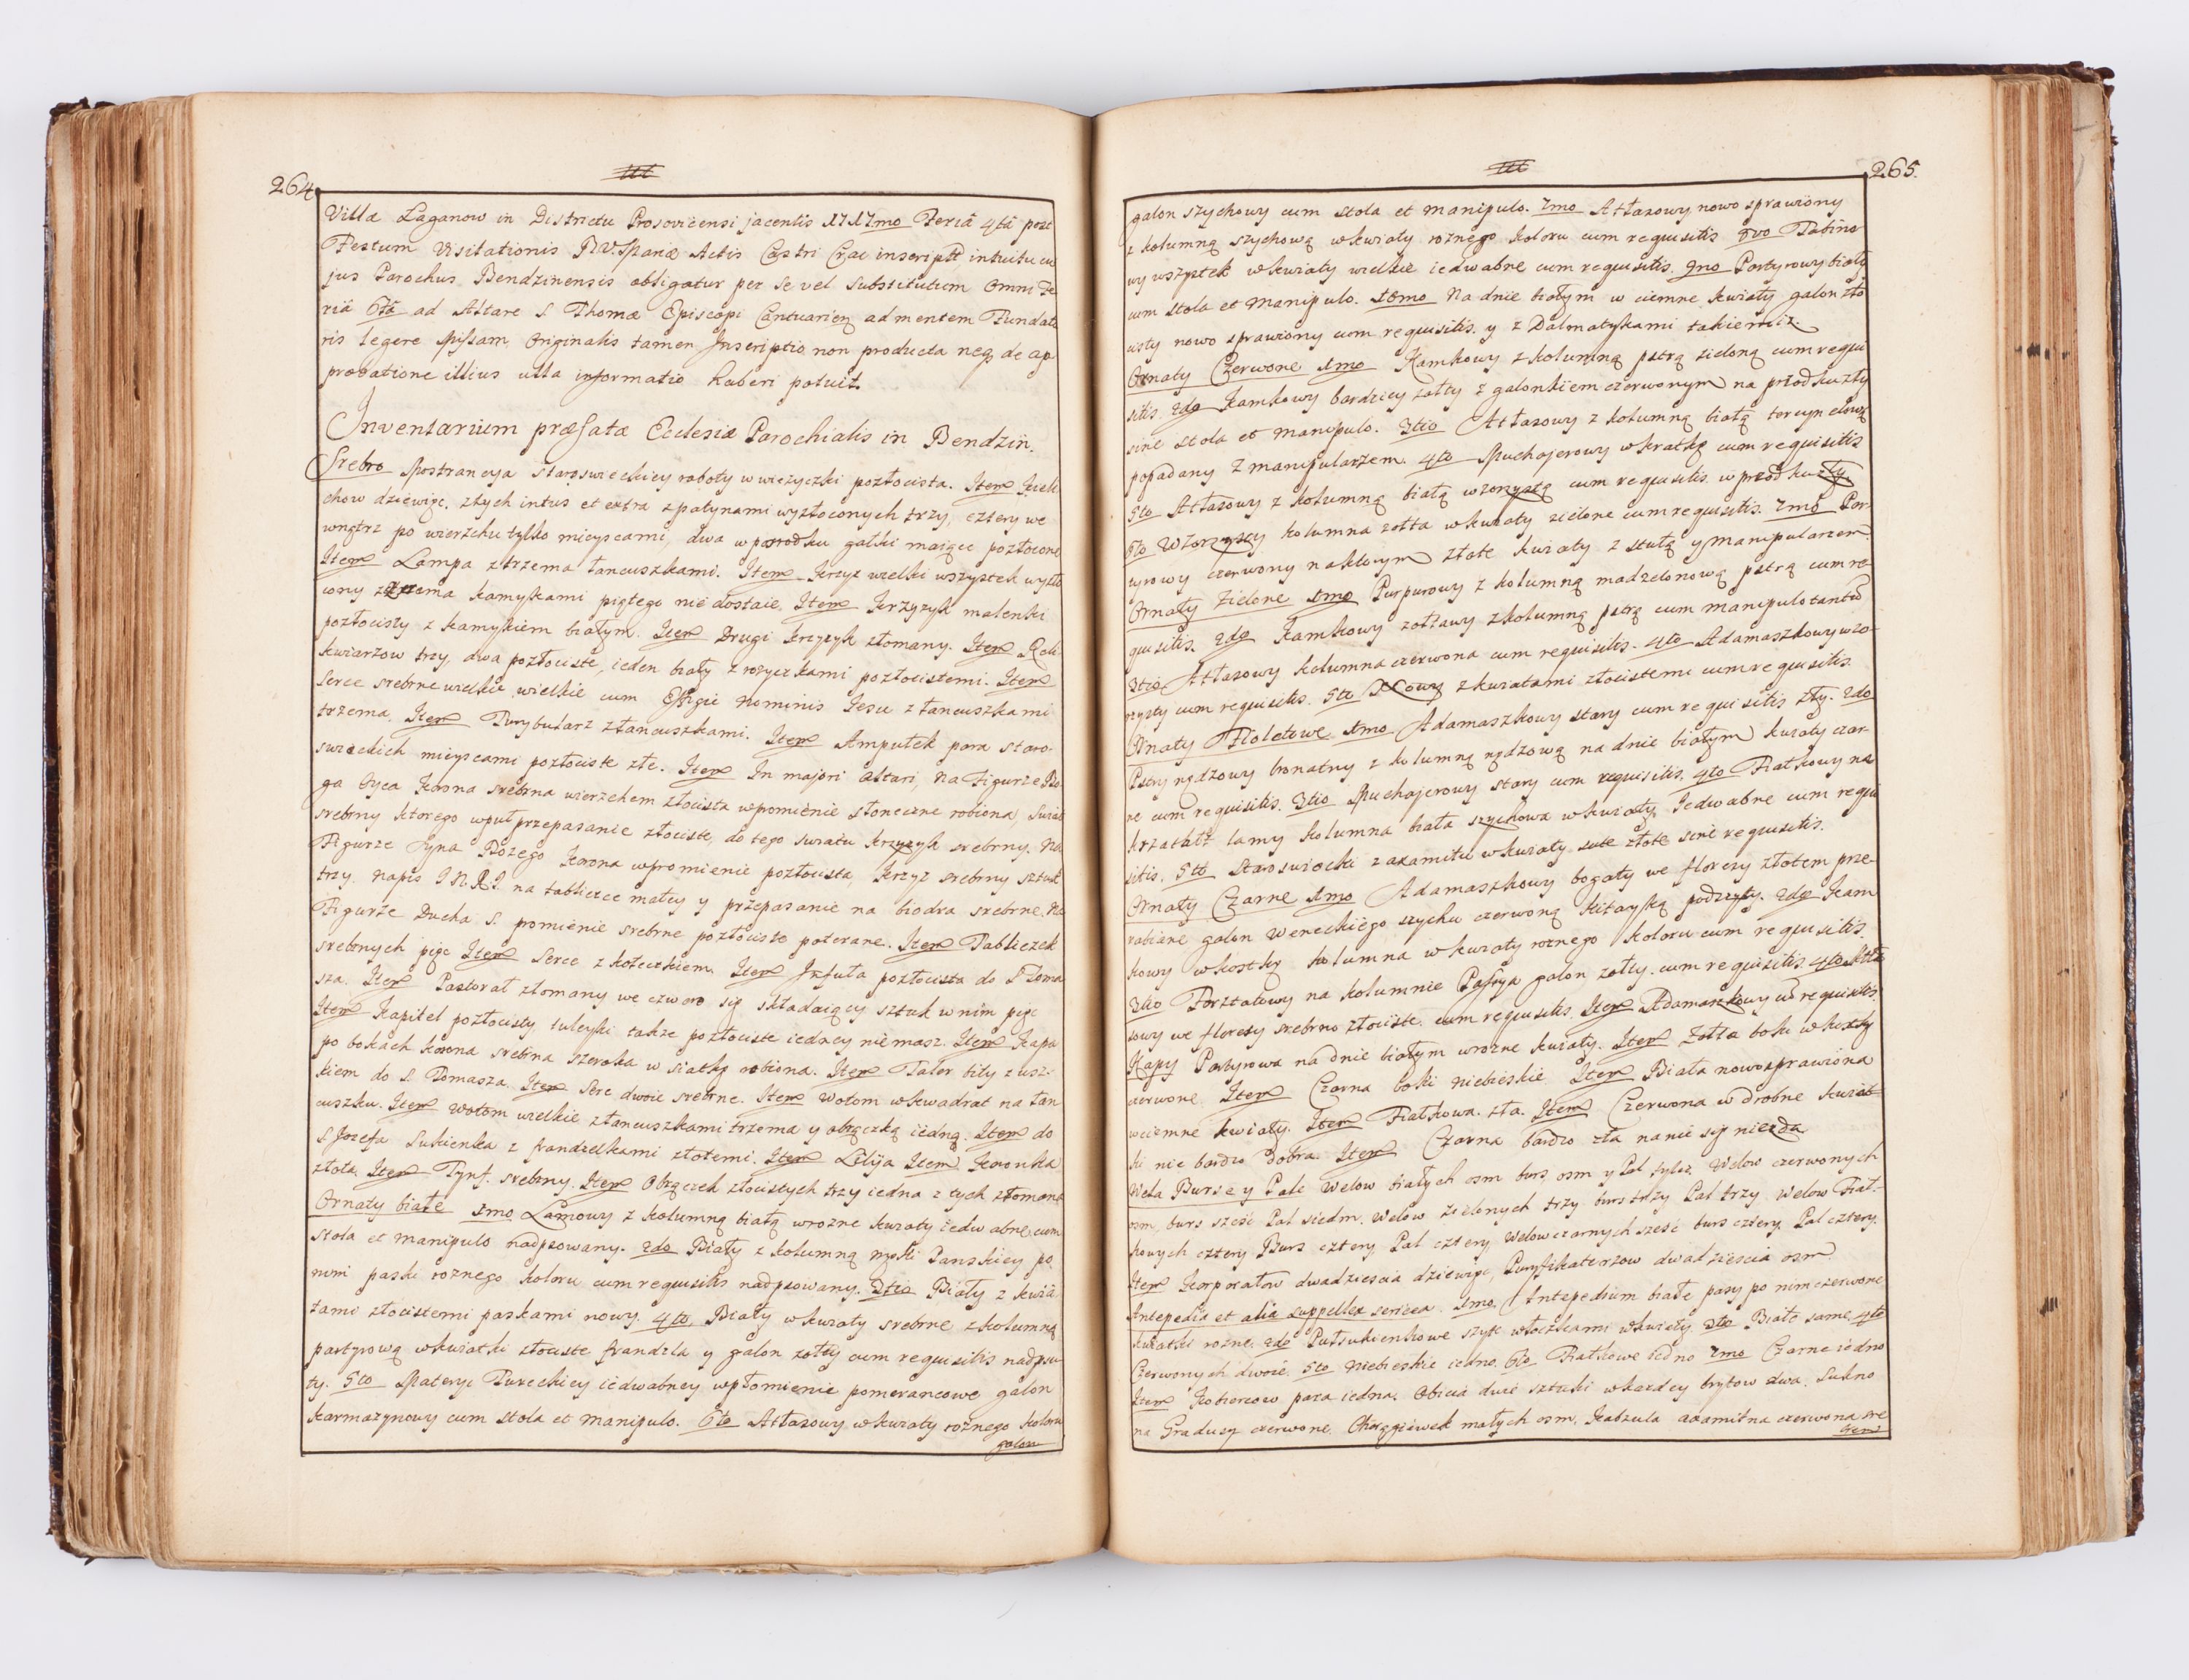 264
Villæ Laganow in Districtu Prosoviensi jacentis 1717mo Feriâ 4tâ post
Festum Visitationis B.V. Mariæ Actis Castri Crac: inscript: intuitu cu
jus Parochus Bendzinensis obligatur per se vel Substitutum omni Fe
riâ 6tâ ad Altare S. Thomæ Episcopi Cantuarien: ad mentem Fundato
ris legere Missam, Originalis tamen Inscriptio non producta neq; de ap
probatione illius ulla informatio haberi potuit.
Inventarium præfatæ Ecclesiæ Parochialis in Bendzin.
Srebro Mostrancya staroswieckiey roboty w wieżyczki pozłocista. Item Kieli
chow dziewięc, z tych intus et extra z patynami wyzłoconych trzy, cztery we
wnątrz po wierzchu tylko mieyscami, dwa w posrodku gałki maiące pozłocone
Item Lampa z trzema łancuszkami. Item Krzyż wielki wszystek wyzło
cony z trzema kamykami piątego niedostaie. Item Krzyzyk malenki
pozłocisty z kamykiem białym. Item Drugi krzyzyk złomany. Item Reli
kwiarzow trzy, dwa pozłociste, ieden biały z rożyczkami pozłocistemi. Item
Serce srebrne wielkie wielkie cum Effigie Nominis Jesu z łancuszkami
trzema. Item Turybularz z łancuszkami. Item Ampułek para staro-
swieckich mieyscami pozłociste złe. Item In majori Altari, na Figurze Bo
ga Oyca Korona srebrna wierzchem złocista w promienie słoneczne robiona, Swiat
srebrny ktorego wpuł przepasanie złociste, do tego swiatu krzyzyk srebrny. Na
Figurze Syna Bożego Korona w promienie pozłocista, krzyż srebrny sztuk
trzy, napis I.N.R.I. na tabliczce małey y przepasanie na biodra srebrne. Na
Figurze Ducha S. promienie srebrne pozłocisto poterane. Item Tabliczek
srebrnych pięc Item Serce z kołeczkiem. Item Infuła pozłocista do S. Toma
sza. Item Pastorał złomany we czworo się składaiący sztuk w nim pięc
Item Kapitel pozłocisty, tuleyki także pozłociste iedney nie masz. Item Kapa
po bokach korona srebrna szeroka w siatkę robiona. Item Taler bity z usz-
kiem do S. Tomasza. Item Serc dwoie srebrne. Item Wotum w kwadrat na łan
cuszku. Item Wotum wielkie z łancuszkami trzema y obrączką iedną. Item do
S. Jozefa Sukienka z frandzelkami złotemi. Item Lilija Item Koronka
złota. Item Tynf. srebrny. Item Obrączek złocistych trzy iedna z tych złomana
Ornaty białe 1mo Lamowy z kolumną białą w rozne kwiaty iedwabne, cum
stola et manipulo nadpsowany. 2do Biały z kolumną męki Panskiey po
nim paski roznego koloru cum requisitis nadpsowany. 3tio Biały z kwia
tami złocistemi paskami nowy. 4to Biały w kwiaty srebrne z kolumną
partyrową w kwiatki złociste frandzla y galon zołty cum requisitis nadpsu
ty. 5to Materyi Tureckiey iedwabney w płomienie pomerancowe galon
karmazynowy cum stola et manipulo. 6to Atłasowy w kwiaty roznego koloru
galon
265.
galon szychowy cum stola et manipulo. 7mo Atłasowy nowo sprawiony
z kolumną szychową w kwiaty roznego koloru cum requisitis 8vo Tabino
wy wszystek w kwiaty wielkie iedwabne cum requisitis. 9no Partyrowy biały
cum stola et manipulo. 10mo Na dnie białym w ciemne kwiaty galon zło
cisty nowo sprawiony cum requisitis y z Dalmatykami takiemiż.
Ornaty Czerwone 1mo Kamkowy z kolumną pstrą zieloną cum requi
sitis. 2do Kamkowy bardziey zołty z galonkiem czerwonym na przodku zły
sine stola et manipulo. 3tio Atłasowy z kolumną białą tercynelową
popadany z manipularzem. 4to Muchajerowy w kratkę cum requisitis
5to Atłasowy z kolumną białą wzorzystą cum requisitis w przodku zły.
6to Wzorzysty kolumna zołta w kwiaty zielone cum requisitis. 7mo Par-
tyrowy czerwony na ktorym złote kwiaty z stułą y manipularzem.
Ornaty Zielone 1mo Purpurowy z kolumną madzelonową pstrą cum re
quisitis. 2do Kamkowy zołtawy z kolumną pstrą cum manipulo tantu
3tio Atłasowy kolumna czerwona cum requisitis. 4to Adamaszkowy wzo-
rzysty cum requisitis. 5to z kwiatami złocistemi cum requisitis.
Ornaty Fioletowe 1mo Adamaszkowy stary cum requisitis zły. 2do
Pstry rądzowy bronatny z kolumną rądzową na dnie białym kwiaty czar-
ne cum requisitis. 3tio Muchajerowy stary cum requisitis. 4to Fiałkowy na
krzatałt lamy kolumna biała szychowa w kwiaty Jedwabne cum requi
sitis. 5to Staroswiecki z axamitu w kwiaty sute złote sine requisitis.
Ornaty Czarne 1mo Adamaszkowy bogaty we floresy złotem prze-
rabiane galon Weneckiego szychu czerwoną Kitayką podszyty. 2do Kam
kowy w kostkę kolumna w kwiaty roznego koloru cum requisitis.
3tio Forsztatowy na kolumnie Passya galon zołty cum requisitis. 4to Atła
sowy we floresy srebrno złociste cum requisitis. Item Adamaszkowy requisitis.
Kapy Partyrowa na dnie białym w rozne kwiaty. Item Zołta boki w kostkę
czerwone Item Czarna boki niebieskie Item Biała nowo sprawiona
w ciemne kwiaty. Item Fiałkowa zła. Item Czerwona w drobne kwiat-
ki nie bardzo dobra. Item Czarna bardzo zła na nic się nie zda
Wela Bursę y Pale Welow białych osm burs osm y Pal tyleż, Welow czerwonych
osm, burs szesc Pal siedm. Welow zielonych trzy burs trzy Pal trzy. Welow Fiał-
kowych cztery Burs cztery, Pal cztery, Welow czarnych szesc burs cztery, Pal cztery.
Item Korporałow dwadziescia dziewięc, Puryfikaterzow dwadziescia osm
Antepedia et alia suppellex sericea. 1mo Antepedium białe pasy po nim czerwone
kwiatki rozne. 2do Pułsukienkowe szyte włoczkami w kwiaty 3tio Białe same. 4to
Czerwonych dwoie. 5to Niebieskie iedno. 6to Fiałkowe iedno 7mo Czarne iedno
Item Kobiercow para iedna. Obicia dwie sztuki w kazdey brytow dwa. Sukno
na Gradusy czerwone. Chorągiewek małych osm. Kabzula axamitna czerwona sre
Item